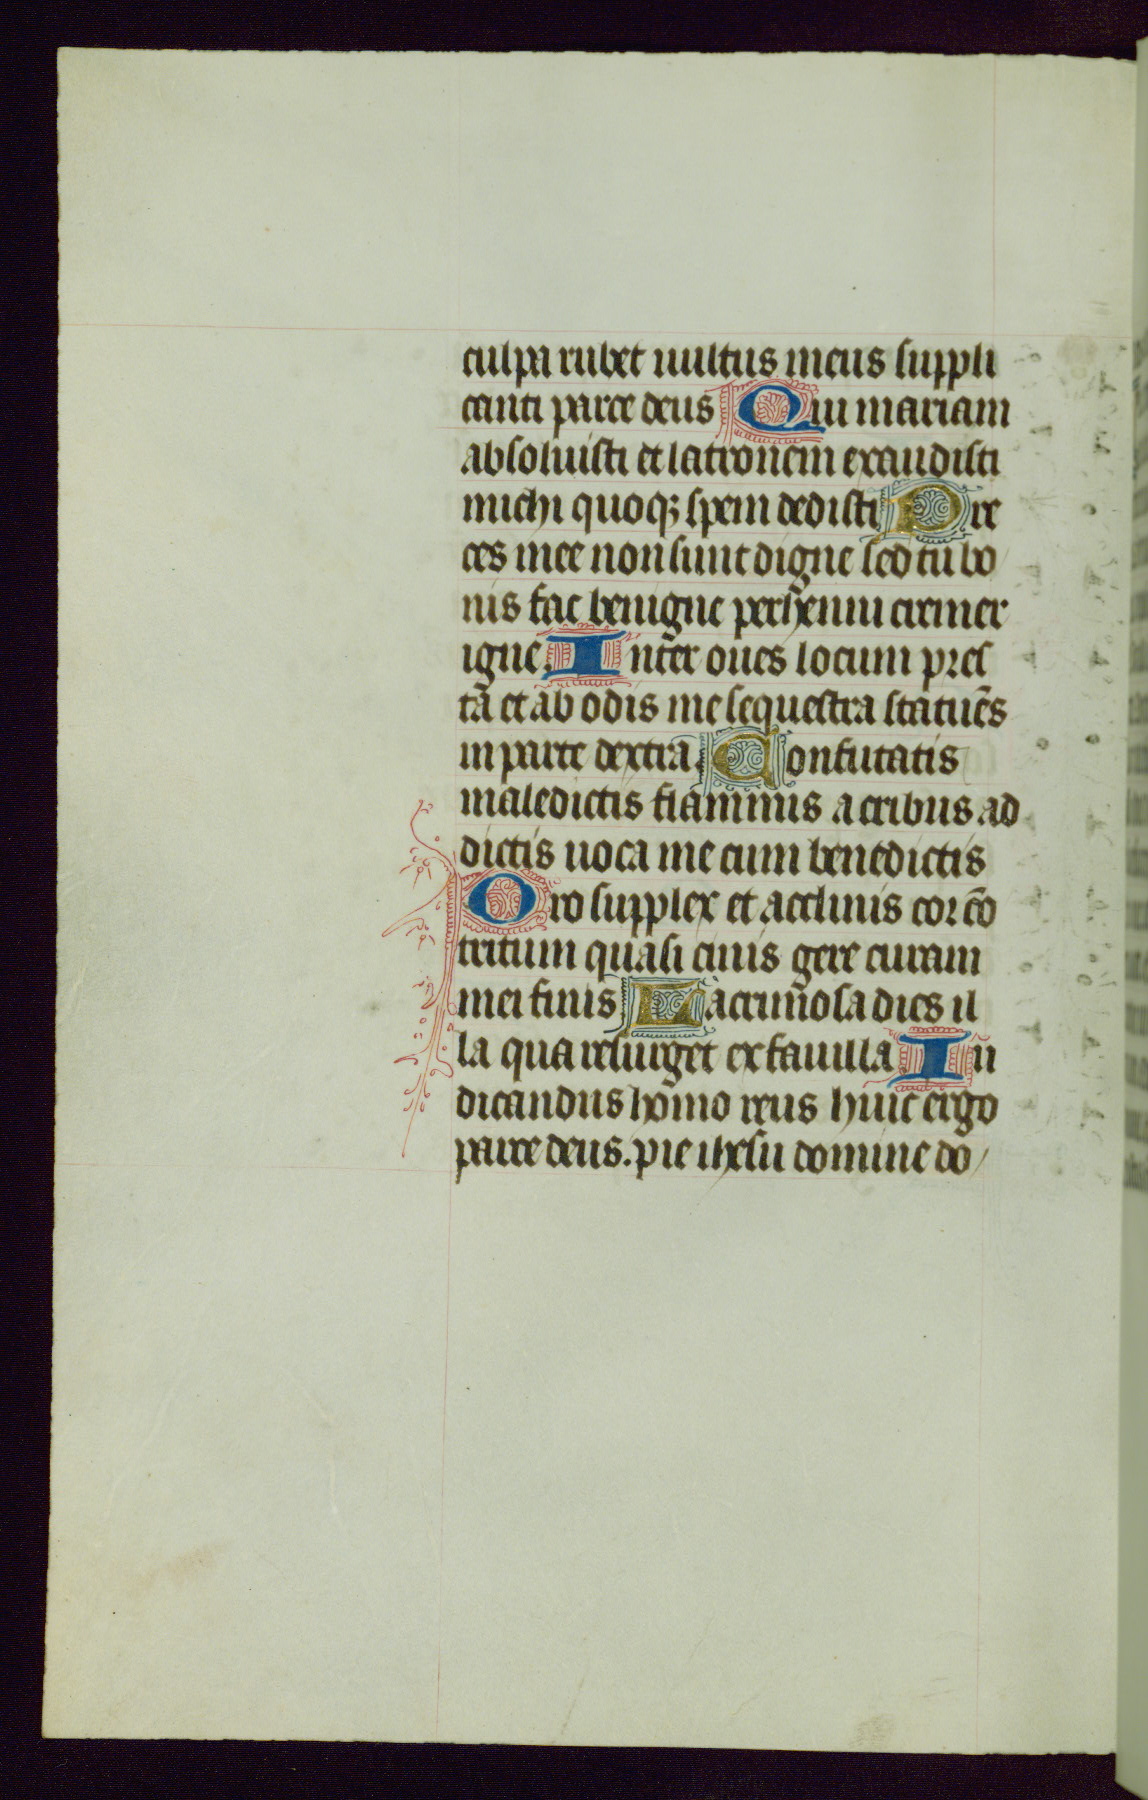 culpa rubet uultus meus suppli
canti parce deus Qui mariam
absoluisti et latronem exaudisti
michi quoqꝫ spem dedisti Pre
ces mee non sunt digne sed tu bo
nis fac benigne perhenni cremer
igne. Inter oues locum pres
ta et ab odis me sequestra statuēs
in parte dextra. Confutatis
maledictis flammis acribus ad
dictis uoca me cum benedictis
Oro supplex et acclinis cor cō
tritum quasi cinis gere curam
mei finis Lacrimosa dies il
la qua resurget ex fauilla Iu
dicandus homo reus huic ergo
parce deus. pie ihesu domine do